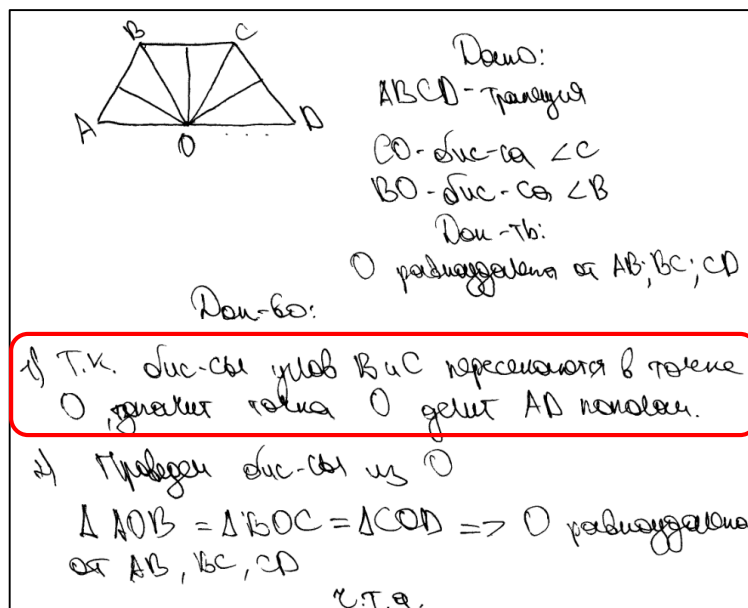 B C
A O D
Дано:
ABCD - трапеция
CO - бис-са ∠C
BO - бис-са ∠B
Док-ть:
O равноудалена от AB; BC; CD
Док-во:
1) Т.к. бис-сы углов B и C пересекаются в точке
O, значит точка O делит AD пополам.
2) Проведем бис-сы из O
△AOB = △BOC = △COD => O равноудалена
от AB, BC, CD
ч.т.д.